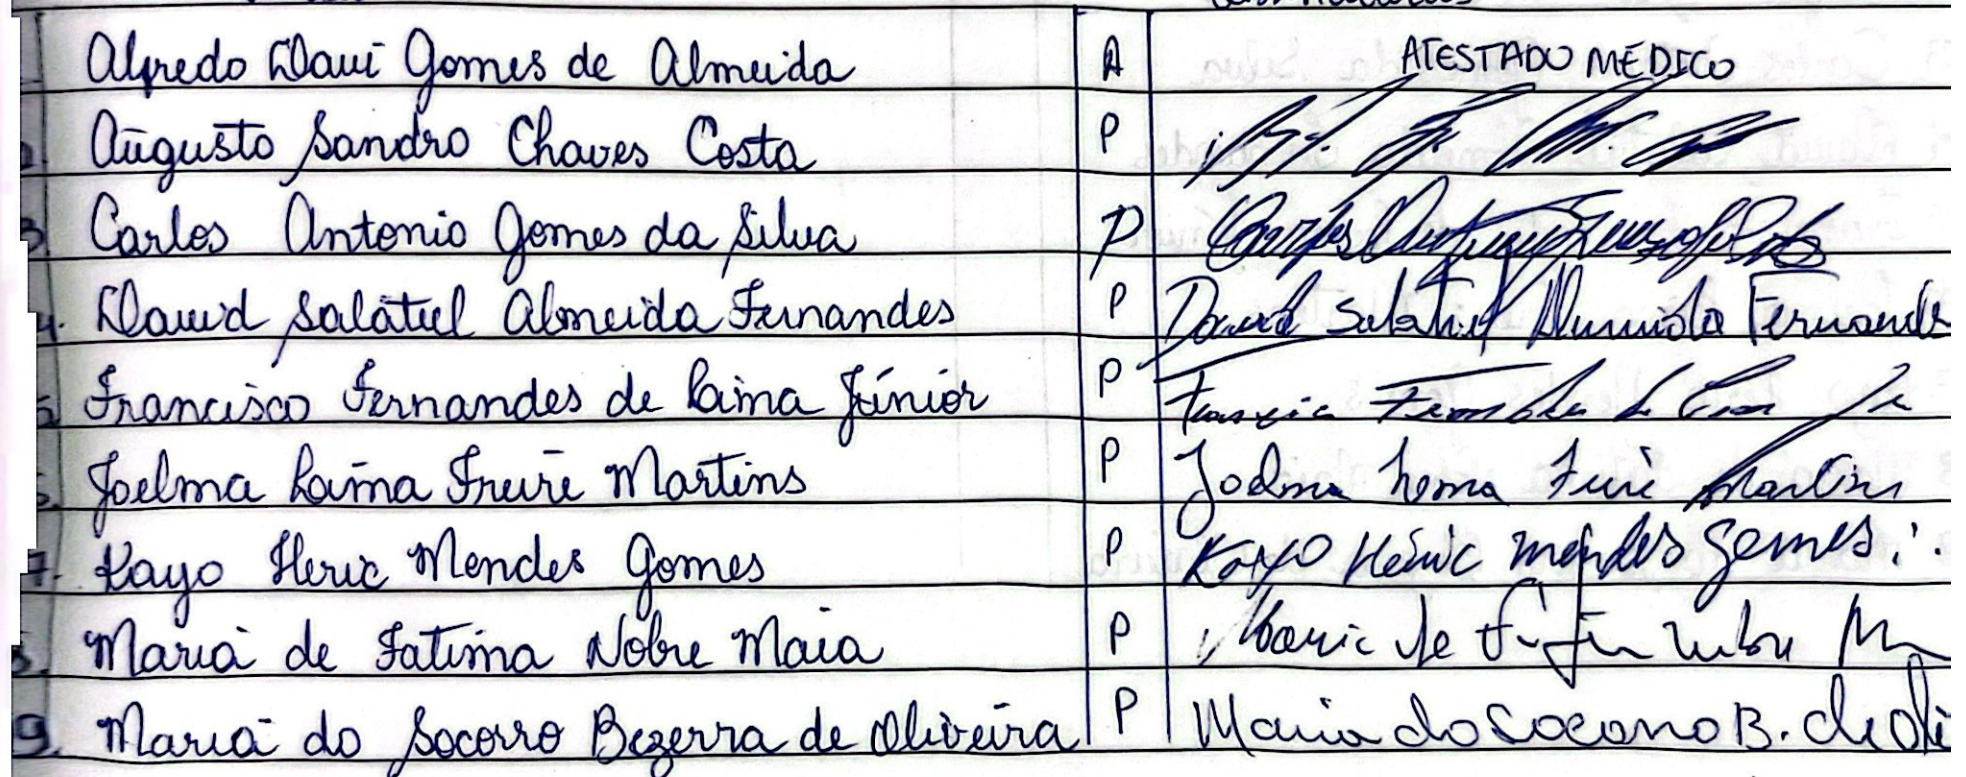 Alfredo Davi Gomes de Almeida A ATESTADO MÉDICO
Augusto Sandro Chaves Costa P
3. Carlos Antonio Gomes da Silva P Carlos Antonio Gomes da Silva
4. David Salatiel Almeida Fernandes P David Salatiel Almeida Fernande
5. Francisco Fernandes de Lima Júnior P
6. Joelma Lima Freire Martins P Joelma Lima Freire Martins
7. Kayo Heric Mendes Gomes P Kayo Héric mendes gomes
8. Maria de Fatima Nobre Maia P Maria de
9. Maria do Socorro Bezerra de Oliveira P Maria do Socorro B. de Oli